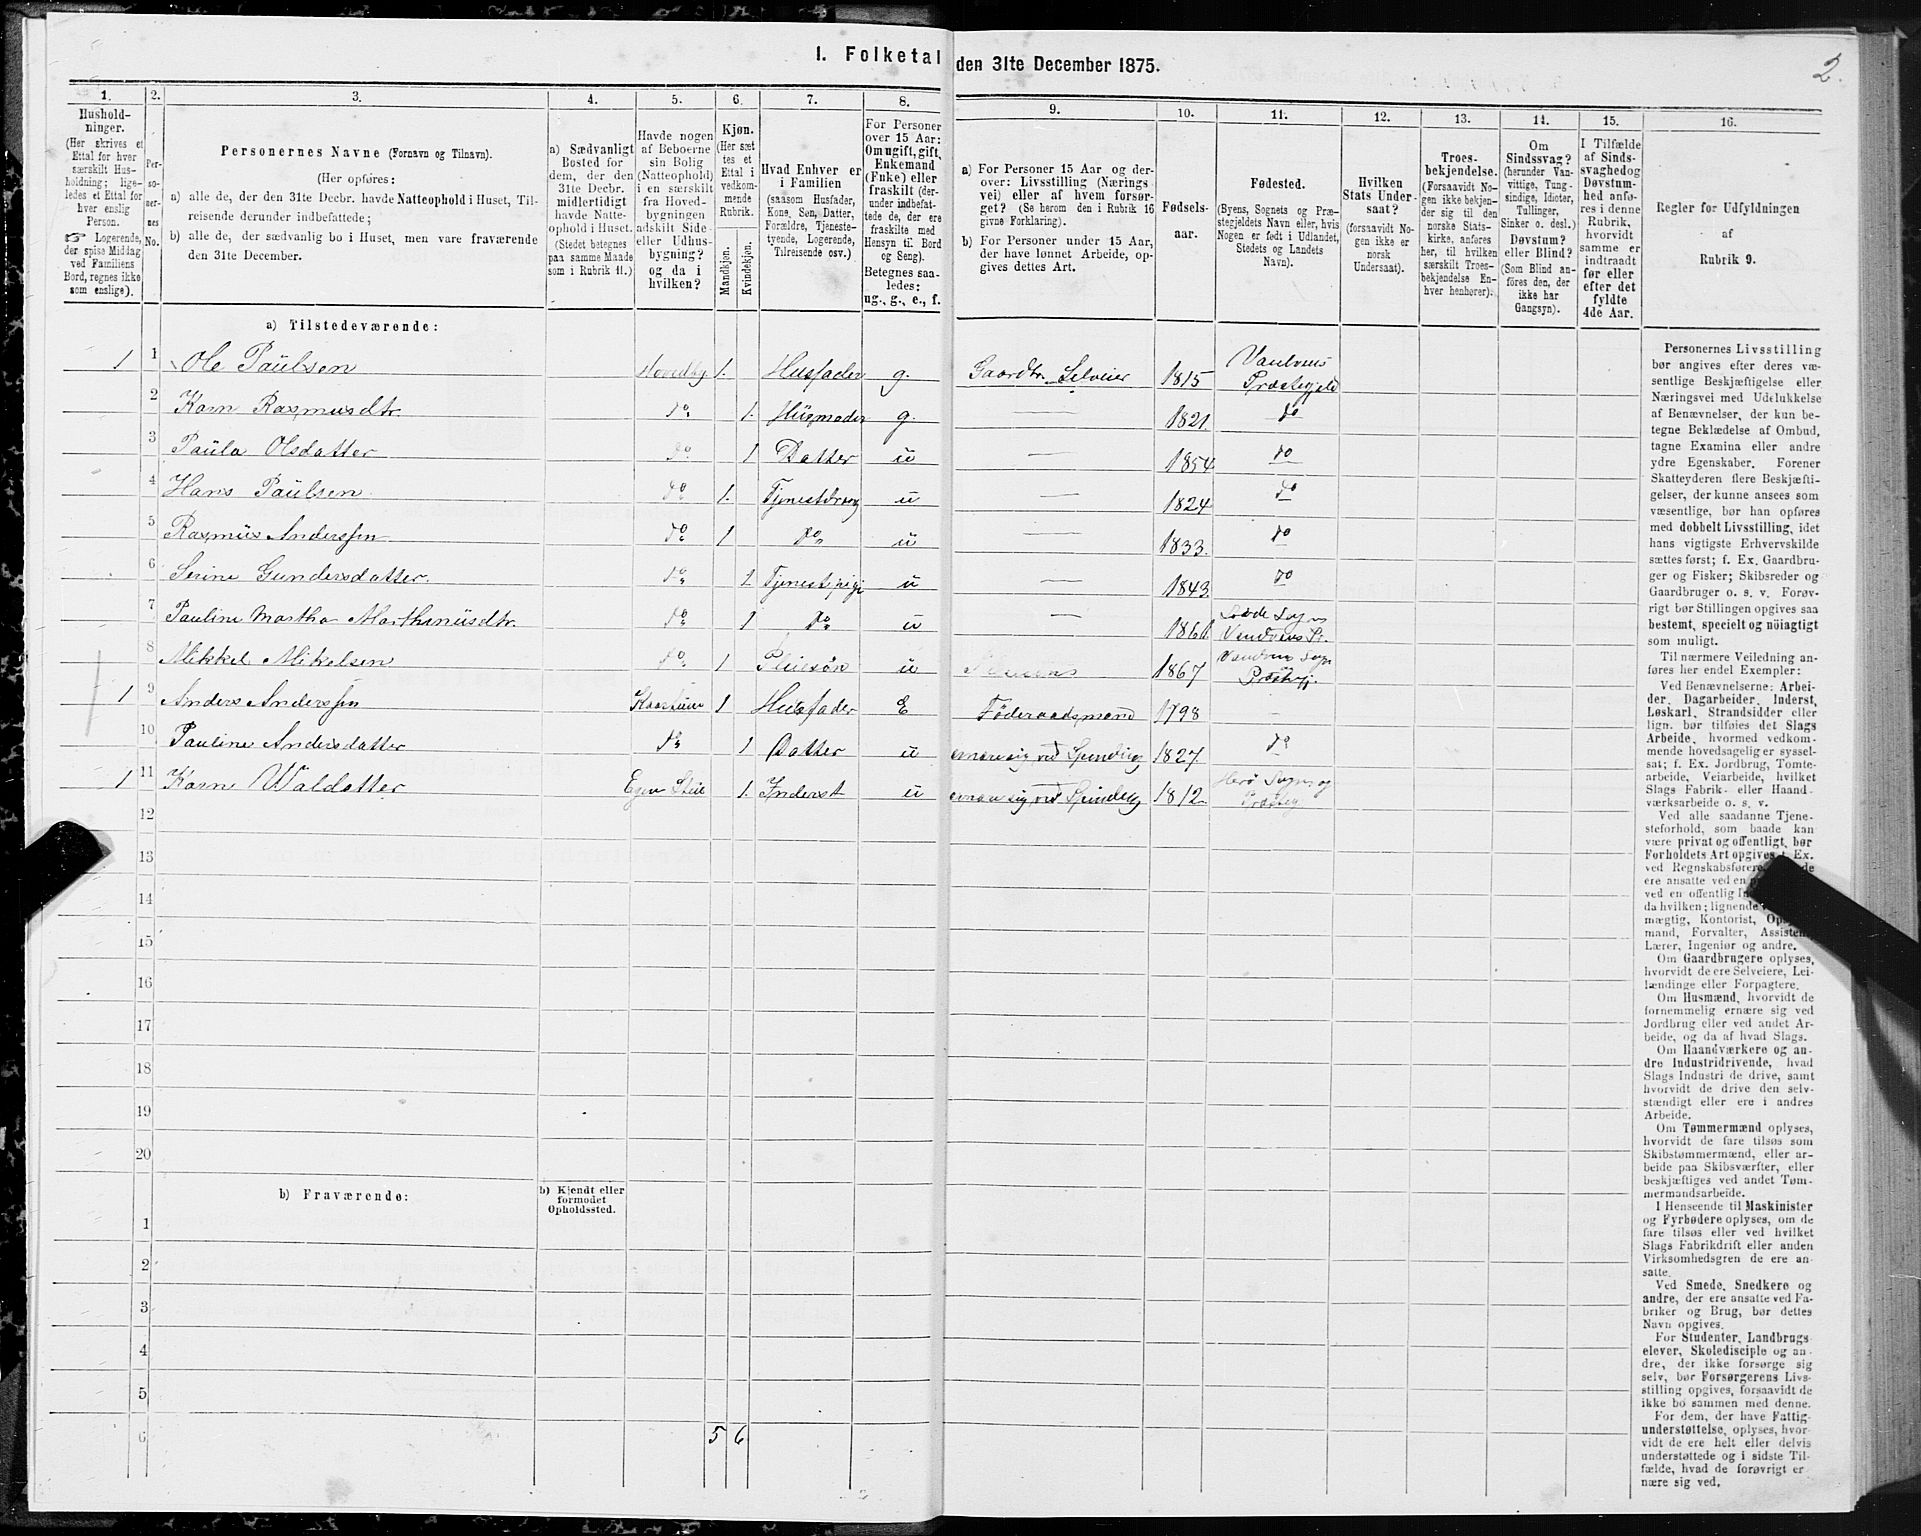 I. Folketal den 31te December 1875.
2.
1. 2. 3. 4. 5. 6. 7. 8. 9. 10. 11. 12. 13. 14. 15. 16.
Hushold-
ninger.
(Her skrives et
Ettal for hver
særskilt Hus-
holdning; lige-
ledes et Ettal for
hver enslig
Person.
☞ Logerende,
der spise Middag
ved Familiens
Bord, regnes ikke
som enslige).
Per-
so-
ner-
nes
No.
Personernes Navne (Fornavn og Tilnavn).
(Her opføres:
a) alle de, der den 31te Decbr. havde Natteophold i Huset, Til-
reisende derunder indbefattede;
b) alle de, der sædvanlig bo i Huset, men vare fraværende
den 31te December.
a) Sædvanligt
Bosted for
dem, der den
31te Decbr.
midlertidigt
havde Natte-
ophold i Huset.
(Stedet betegnes
paa samme Maade
som i Rubrik 11.)
Havde nogen
af Beboerne
sin Bolig
(Natteophold)
i en særskilt
fra Hoved-
bygningen
adskilt Side-
eller Udhus-
bygning?
og da i
hvilken?
Kjøn.
(Her sæt
tes et
Ettal i
vedkom-
mende
Rubrik.
Mandkjøn.
Kvindekjøn.
Hvad Enhver er
i Familien
(saasom Husfader,
Kone, Søn, Datter,
Forældre, Tjeneste-
tyende, Logerende,
Tilreisende osv.)
For Personer
over 15 Aar:
Om ugift, gift,
Enkemand
(Enke) eller
fraskilt (der-
under indbefat-
tede de, der ere
fraskilte med
Hensyn til Bord
og Seng).
Betegnes saa-
ledes:
ug., g., e., f.
a) For Personer 15 Aar og der-
over: Livsstilling (Nærings
vei) eller af hvem forsør-
get? (Se herom den i Rubrik 16
givne Forklaring).
b) For Personer under 15 Aar,
der have lønnet Arbeide, op-
gives dettes Art.
Fødsels-
aar.
Fødested.
(Byens, Sognets og Præ-
stegjeldets Navn eller, hvis
Nogen er født i Udlandet,
Stedets og Landets
Navn).
Hvilken
Stats Under-
saat?
(forsaavidt No-
gen ikke er
norsk
Undersaat).
Troes-
bekjendelse.
(Forsaavidt No-
gen ikke bekjen-
der sig til den
norske Stats-
kirke, anføres
her, til hvilken
særskilt Troes-
bekjendelse En-
hver henhører).
Om
Sindssvag?
(herunder Van-
vittige, Tung-
sindige, Idioter,
Tullinger,
Sinker o. desl.)
Døvstum?
eller Blind?
(Som Blind an-
føres den, der
ikke har
Gangsyn).
I Tilfælde
af Sinds-
svaghed og
Døvstum-
hed anfø-
res i denne
Rubrik,
hvorvidt
samme er
indtraadt
før eller
efter det
fyldte
4de Aar.
Regler for Udfyldningen
af
Rubrik 9.
a) Tilstedeværende:
1 1 Ole Paulsen Hovedby 1. Husfader g. Gaardbr. Selveier 1815 Vanlvens Præstegjeld
2 Karn Rasmusdtr. do 1. Husmoder g. — 1821. do
3 Paula Olsdatter do 1 Datter u — 1854. do
4 Hans Paulsen do 1. Tjenestdreng u — 1824 do
5 Rasmus Anderssen do 1 do u — 1833. do
6 Serine Gundersdatter. do 1. Tjenestpige u — 1843. do
7 Pauline Martha Marthinusdtr. do 1 do u — 1861. Sogn Vandvens Pr.
8 Mikkel Mikelsen do 1 Pleiesøn u 1867 Sogn Præstegj.
1 9 Anders Anderssen 1 Husfader E Føderaadsmand 1798 —
10 Pauline Andersdatter do 1 Datter u ernære sig ved Spinding 1827. do
1 11 Karn Waldatter Egen Stue 1. Inderst u ernær sig ved Spinding 1812. Herø Sogn og Præsteg
12
13
14
15
16
17
18
19
20
b) Fraværende:
b) Kjendt eller
formodet
Opholdssted.
1
2
3
4
5
6
5 6
Personernes Livsstilling
bør angives efter deres væ-
sentlige Beskjæftigelse eller
Næringsvei med Udelukkelse
af Benævnelser, der kun be-
tegne Beklædelse af Ombud,
tagne Examina eller andre
ydre Egenskaber. Forener
Skatteyderen flere Beskjæfti-
gelser, der kunne ansees som
væsentlige, bør han opføres
med dobbelt Livsstilling, idet
hans vigtigste Erhvervskilde
sættes først; f. Ex. Gaardbru-
ger og Fisker; Skibsreder og
Gaardbruger o. s. v. Forøv-
rigt bør Stillingen opgives saa
bestemt, specielt og nöiagtigt
som muligt.
Til nærmere Veiledning an-
føres her endel Exempler:
Ved Benævnelserne: Arbei-
der, Dagarbeider, Inderst,
Løskarl, Strandsidder eller
lign. bør tilføies det Slags
Arbeide, hvormed vedkom-
mende hovedsagelig er syssel-
sat; f. Ex. Jordbrug, Tomte-
arbeide, Veiarbeide, hvilket
Slags Fabrik- eller Haand-
værksarbeide o. s. v.
Ved alle saadanne Tjene-
steforhold, som baade kan
være privat og offentligt, bør
Forholdets Art opgives, f. Ex.
ved Regnskabsførere,
ere ansatte ved en
ved en offentlig
da hvilken; lignende
mægtig, Kontorist,
mand, Forvalter,
Lærer, Ingeniør og andre.
Om Gaardbrugere oplyses,
hvorvidt de ere Selveiere, Lei-
lændinge eller Forpagtere.
Om Husmænd, hvorvidt de
fornemmelig ernære sig ved
Jordbrug eller ved andet Ar-
beide, og da af hvad Slags.
Om Haandværkere og an-
dre Industridrivende, hvad
Slags Industri de drive, samt
hvorvidt de drive den selv-
stændigt eller ere i andres
Arbeide.
Om Tømmermænd oplyses,
hvorvidt de fare tilsøs som
Skibstømmermænd, eller ar-
beide paa Skibsværfter, eller
beskjæftiges ved andet Tøm-
mermandsarbeide.
I Henseende til Maskinister
og Fyrbødere oplyses, om de
fare tilsøs eller ved hvilket
Slags Fabrikdrift eller anden
Virksomhedsgren de ere an-
satte.
Ved Smede, Snedkere og
andre, der ere ansatte ved Fa-
briker og Brug, bør dettes
Navn opgives.
For Studenter, Landbrugs-
elever, Skoledisciple og an-
dre, der ikke forsørge sig
selv, bør Forsørgerens Livs-
stilling opgives, forsaavidt de
ikke bo sammen med denne.
For dem, der have Fattig-
understøttelse, oplyses, hvor-
vidt de ere helt eller delvis
understøttede og i sidste Til-
fælde, hvad de forøvrigt er-
nære sig ved.